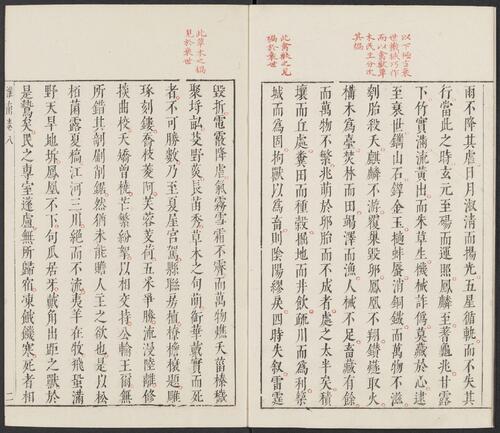 以下極言衰
世機械巧作
而以禽獸草
木民生分次
其禍
此禽獸之見
禍於衰世
雨不降其虐日月淑清而揚光五星循軌而不失其
行當此之時玄元至碭而運照鳳麟至蓍龜兆甘露
下竹實滿流黃出而朱草生機械詐僞莫藏於心逮
至衰世鐫山石鍥金玉擿蚌蜃消銅鐵而萬物不滋
刳胎殺夭麒麟不游覆巢毀卵鳳凰不翔鑽燧取火
構木爲臺焚林而田竭澤而漁人械不足畜藏有餘
而萬物不繁兆萌於卵胎而不成者處之太半矣積
壤而丘處糞田而種穀掘地而井飲疏川而爲利築
城而爲固拘獸以爲畜則陰陽繆戾四時失敘雷霆
此草木之禍
見於衰世
毀折電霰降虐氛霧雪霜不霽而萬物燋夭菑榛穢
聚埒畝芟野莽長苗秀草木之句萌銜華戴實而死
者不可勝數乃至夏屋宮駕縣聯房植橑檐榱題雕
琢刻鏤喬枝菱阿芙蓉芰荷五采爭勝流漫陸離修
掞曲挍夭矯曾橈芒繁紛挐以相交持公輸王爾無
所錯其剞劂削鋸然猶未能贍人主之欲也是以松
柏菌露夏槁江河三川絕而不流夷羊在牧飛蛩滿
野天旱地坼鳳凰不下句爪居牙戴角出距之獸於
是鷙矣民之專室蓬廬無所歸宿凍餓饑寒死者相
淮南卷八
二